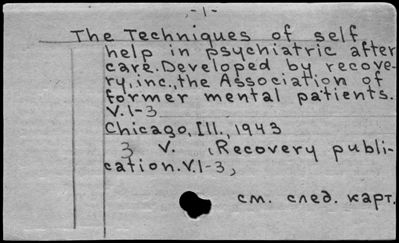 -1-
The Techniques of self
help in psychiatric after
care. Developed by recove-
ry, inc., the Association of
former mental patients.
V.1-3
Chicago, Ill., 1943
3 V. (Recovery publi-
cation. V.1-3,
см. след. карт.